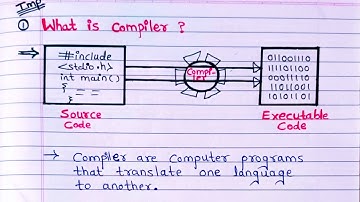 Imp
① What is Compiler ?
#include
<stdio.h>
int main()
{ = =
}
Compiler
01100110
11101100
00011110
11011001
10101101
Source
Code
Executable
Code
→ Compiler are computer programs
that translate one language
to another.